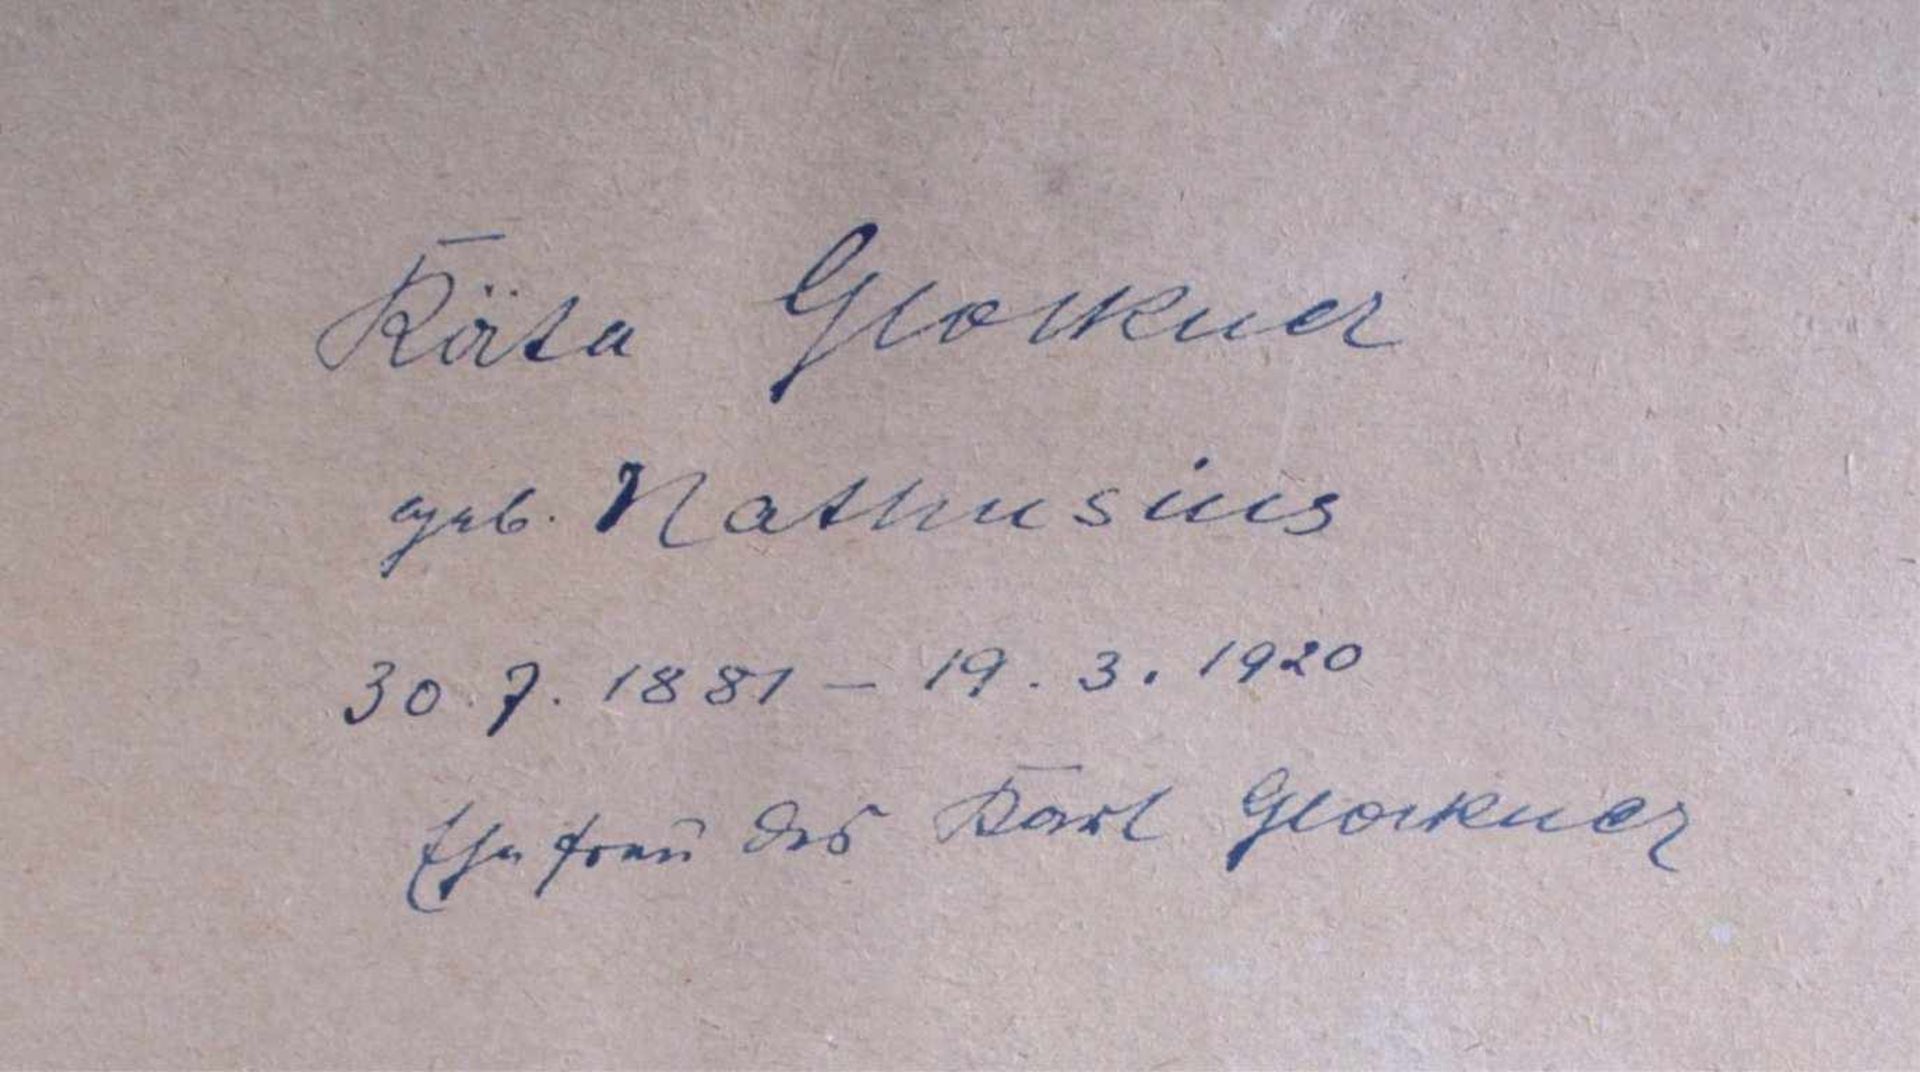 Käta Glockner
geb. Nathusius
30.7.1881 – 19.3.1920
Ehefrau des Karl Glockner